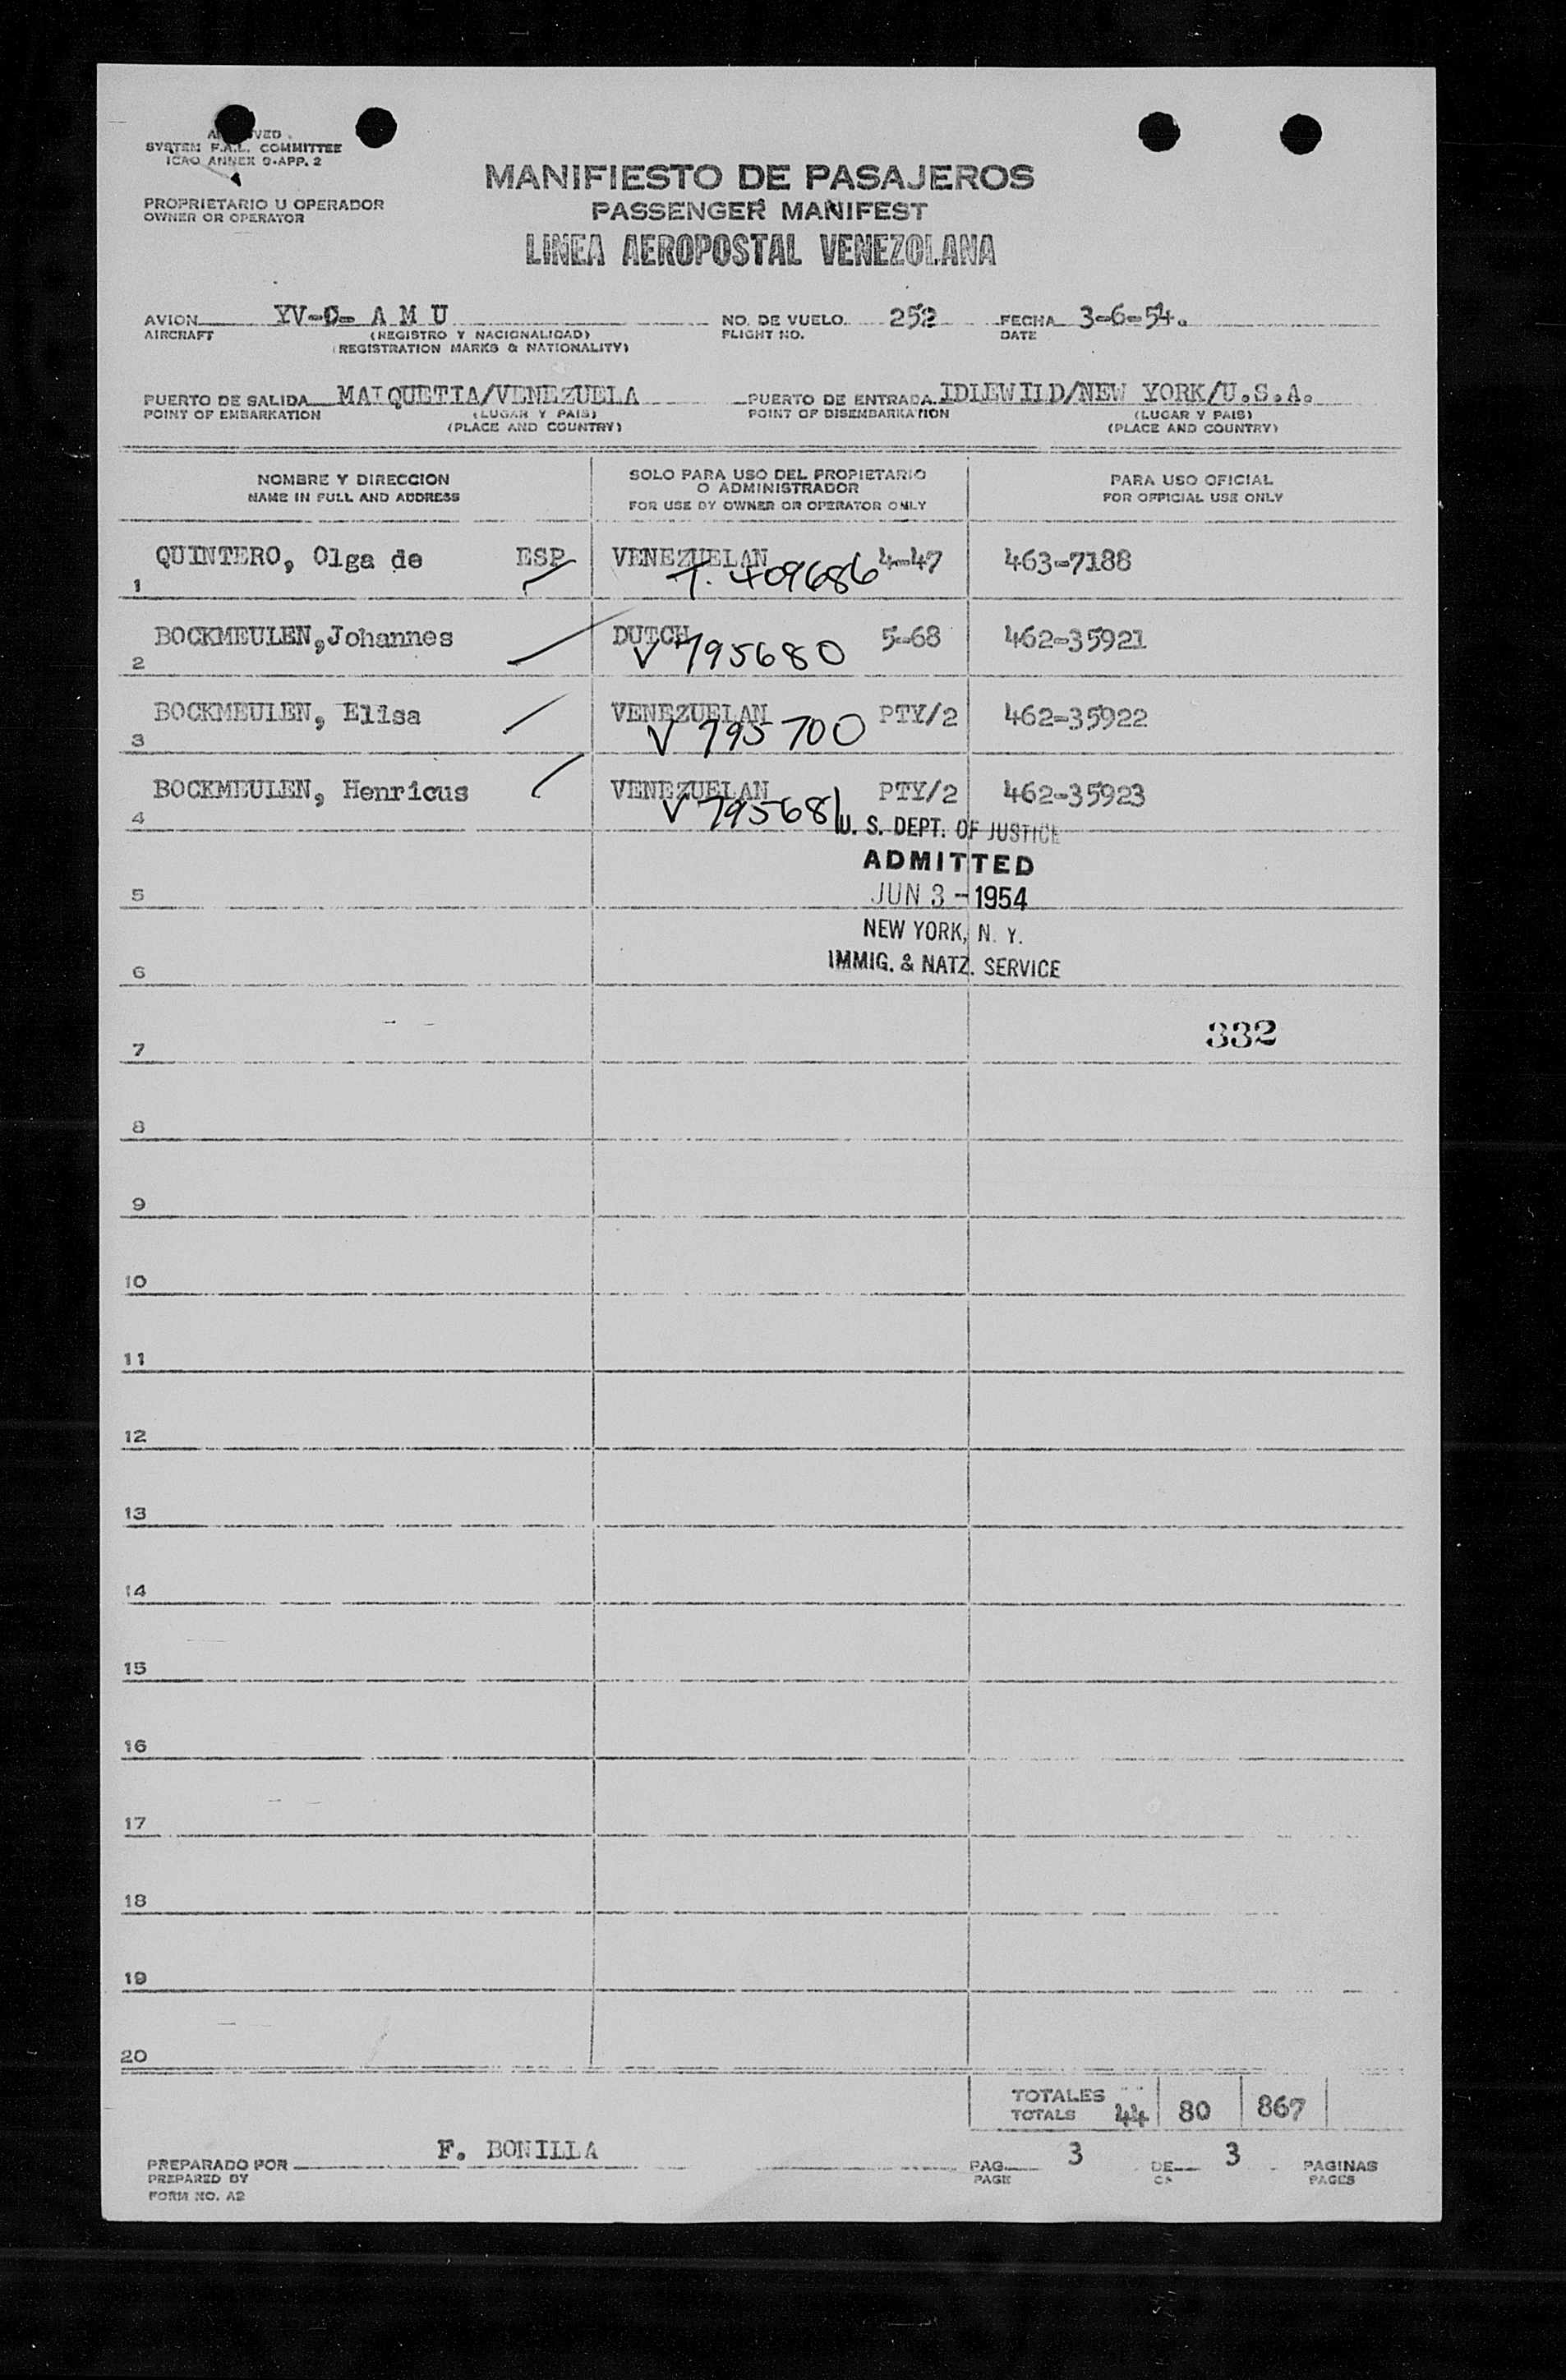 SYSTEM F.A.L. COMMITTEE
ICAO ANNEX 9-APP. 2
PROPRIETARIO U OPERADOR
OWNER OR OPERATOR
MANIFIESTO DE PASAJEROS
PASSENGER MANIFEST
LINEA AEROPOSTAL VENEZOLANA
AVION YV-C- A M U NO. DE VUELO. 252 FECHA 3-6-54.
AIRCRAFT (REGISTRO Y NACIONALIDAD) FLIGHT NO. DATE
(REGISTRATION MARKS & NATIONALITY)
PUERTO DE SALIDA MAIQUETIA/VENEZUELA PUERTO DE ENTRADA. IDLEWILD/NEW YORK/U.S.A.
POINT OF EMBARKATION (LUGAR Y PAIS) POINT OF DISEMBARKATION (LUGAR Y PAIS)
(PLACE AND COUNTRY) (PLACE AND COUNTRY)
NOMBRE Y DIRECCION SOLO PARA USO DEL PROPIETARIO PARA USO OFICIAL
O ADMINISTRADOR
NAME IN FULL AND ADDRESS FOR USE BY OWNER OR OPERATOR ONLY FOR OFFICIAL USE ONLY
QUINTERO, Olga de ESP VENEZUELAN 4-47 463-7188
1 T. 409686
BOCKMEULEN,Johannes DUTCH 5-68 462-35921
2 V 795680
BOCKMEULEN, Elisa VENEZUELAN PTY/2 462-35922
3 V 795700
BOCKMEULEN, Henricus VENEZUELAN PTY/2 462-35923
4 V 795681
U. S. DEPT. OF JUSTICE
ADMITTED
5 JUN 3 - 1954
NEW YORK, N. Y.
6 IMMIG. & NATZ. SERVICE
332
7
8
9
10
11
12
13
14
15
16
17
18
19
20
TOTALES
TOTALS 44 80 867
PREPARADO POR F. BONILLA PAG. 3 DE 3 PAGINAS
PREPARED BY PAGE PAGES
FORM NO. A2